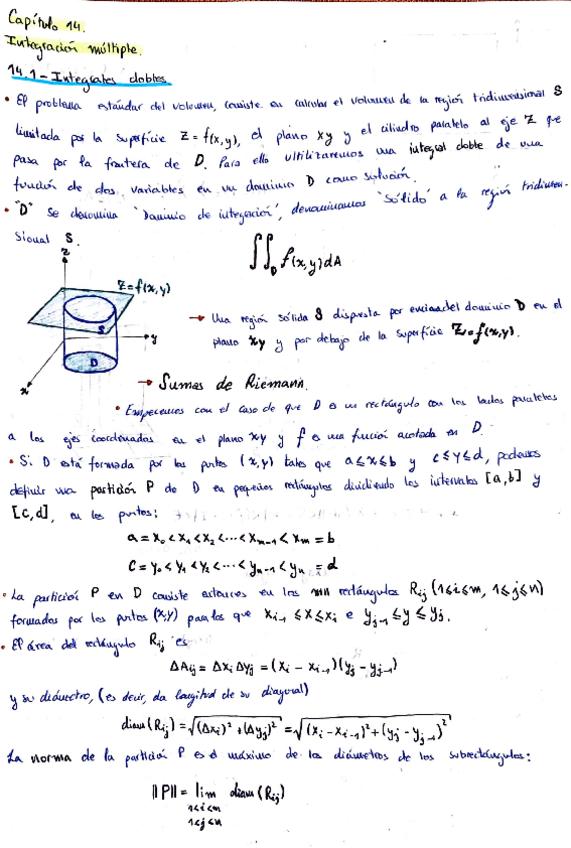 Capítulo 14.
Integración múltiple.
14.1-Integrales dobles
• El problema estándar del volumen, consiste en calcular el volumen de la región tridimensional S
limitada por la superficie Z = f(x,y), el plano xy y el cilindro paralelo al eje Z que
pasa por la frontera de D. Para ello utilizaremos una integral doble de una
función de dos variables en un dominio D como solución.
• "D" se denomina 'Dominio de integración', denominamos 'Sólido' a la región tridimen-
sional S.
∬_D f(x,y)dA
z
Z=f(x,y)
S
y
D
x
→ Una región sólida S dispuesta por encima del dominio D en el
plano xy y por debajo de la superficie Z=f(x,y).
→ Sumas de Riemann.
• Empecemos con el caso de que D es un rectángulo con los lados paralelos
a los ejes coordenados en el plano xy y f es una función acotada en D.
• Si D está formada por los puntos (x,y) tales que a≤x≤b y c≤y≤d, podemos
definir una partición P de D en pequeños rectángulos dividiendo los intervalos [a,b] y
[c,d], en los puntos:
a = x₀ < x₁ < x₂ < ··· < xₘ₋₁ < xₘ = b
c = y₀ < y₁ < y₂ < ··· < yₙ₋₁ < yₙ = d
• La partición P en D consiste entonces en los mn rectángulos Rij (1≤i≤m, 1≤j≤n)
formados por los puntos (x,y) para los que xi-1 ≤ x ≤ xi e yj-1 ≤ y ≤ yj.
• El área del rectángulo Rij es
ΔAij = Δxi Δyj = (xi - xi-1)(yj - yj-1)
y su diámetro, (es decir, la longitud de su diagonal)
diam(Rij) = √((Δxi)² + (Δyj)²) = √((xi - xi-1)² + (yj - yj-1)²)
La norma de la partición P es el máximo de los diámetros de los subrectángulos:
||P|| = lim diam(Rij)
1≤i≤m
1≤j≤n